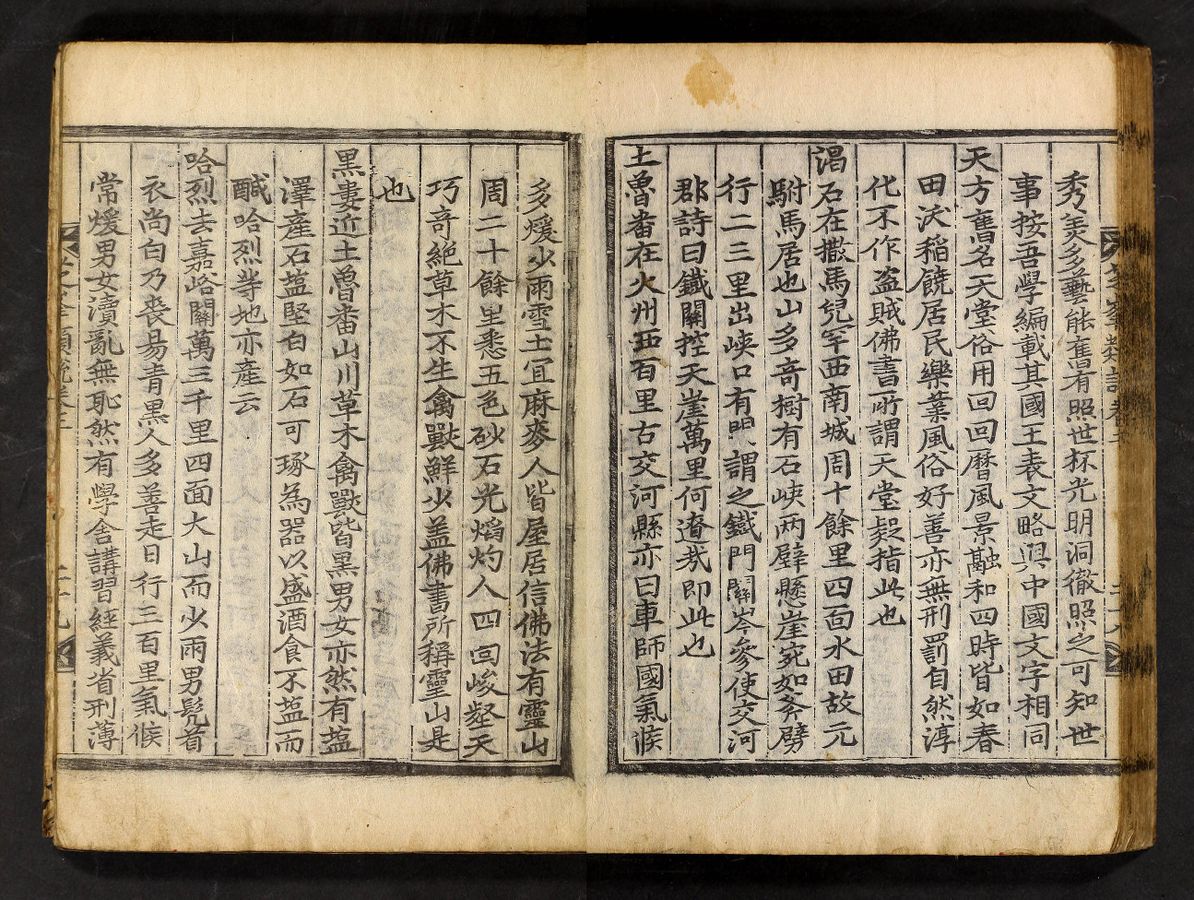 秀美多藝能舊有照世杯光明洞徹照之可知世
事按吾學編載其國王表文略與中國文字相同
天方舊名天堂俗用回回曆風景融和四時皆如春
田沃稻饒居民樂業風俗好善亦無刑罰自然淳
化不作盜賊佛書所謂天堂疑指此也
渴石在撒馬兒罕西南城周十餘里四面水田故元
駙馬居也山多奇樹有石峽兩壁懸崖宛如斧劈
行二三里出峽口有門謂之鐵門關岑參使交河
郡詩曰鐵關控天崖萬里何遼哉即此也
土魯番在火州西百里古交河縣亦曰車師國氣候
多煖少雨雪土宜麻麥人皆屋居信佛法有靈山
周二十餘里悉五色砂石光焰灼人四面峻壑天
巧奇絕草木不生禽獸鮮少盖佛書所稱靈山是
也
黑婁近土魯番山川草木禽獸皆黑男女亦然有塩
澤產石塩堅白如石可琢為器以盛酒食不塩而
醎哈烈等地亦產云
哈烈去嘉峪關萬三千里四面大山而少雨男髡首
衣尚白乃喪易青黑人多善走日行三百里氣候
常煖男女瀆亂無恥然有學舍講習經義省刑薄